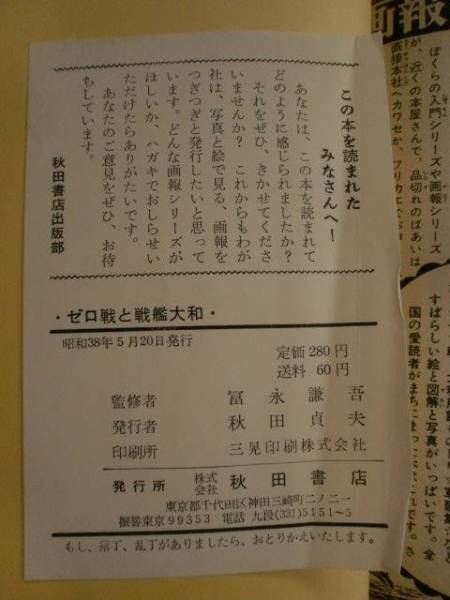 この本を読まれた
みなさんへ!
あなたは、この本を読まれて
どのように感じられましたか?
それをぜひ、きかせてくださ
いませんか? これからもわが
社は、写真と絵で見る、画報を
つぎつぎと発行したいと思って
います。どんな画報シリーズが
ほしいか、ハガキでおしらせい
ただけたらありがたいです。
あなたのご意見をぜひ、お待
ちしています。
秋田書店出版部
・ゼロ戦と戦艦大和・
昭和38年5月20日発行
定価 280円
送料 60円
監修者 冨永謙吾
発行者 秋田貞夫
印刷所 三晃印刷株式会社
発行所 株式会社 秋田書店
東京都千代田区神田三崎町二ノ二一
振替東京99353 電話 九段(331)5151~5
もし、落丁、乱丁がありましたら、おとりかえいたします。
画報
ぼくらの入門シリーズや画報シリーズ
が、近くの本屋さんで、品切れのばあいは
直接本社へカワセか、フリカエで
すばらしい絵と図解と写真がいっぱいです。全
国の愛読者がまちにまった
です。さ